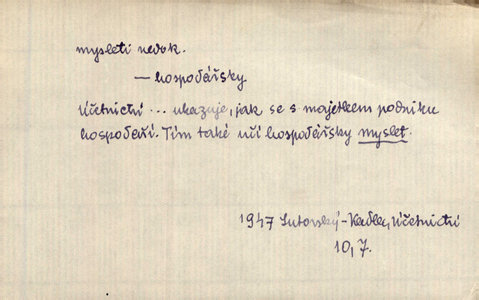 mysleti nedok.
— hospodářsky
Účetnictví ... ukazuje, jak se s majetkem podniku
hospodaří. Tím také učí hospodářsky myslet.
1947 Lutovský-Kadlec, Účetnictví
10,7.